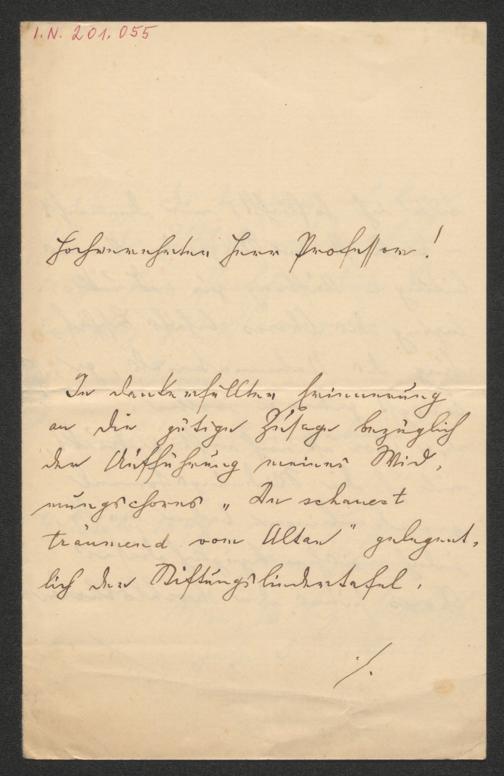 I.N. 201.055
Hochverehrter Herr Professor!
In dankerfüllter Erinnerung
an die gütige Zusage bezüglich
der Aufführung meines Wid-
mungschores „Du schauest
träumend vom Altan" gelegent-
lich der Stiftungsliedertafel.
./.